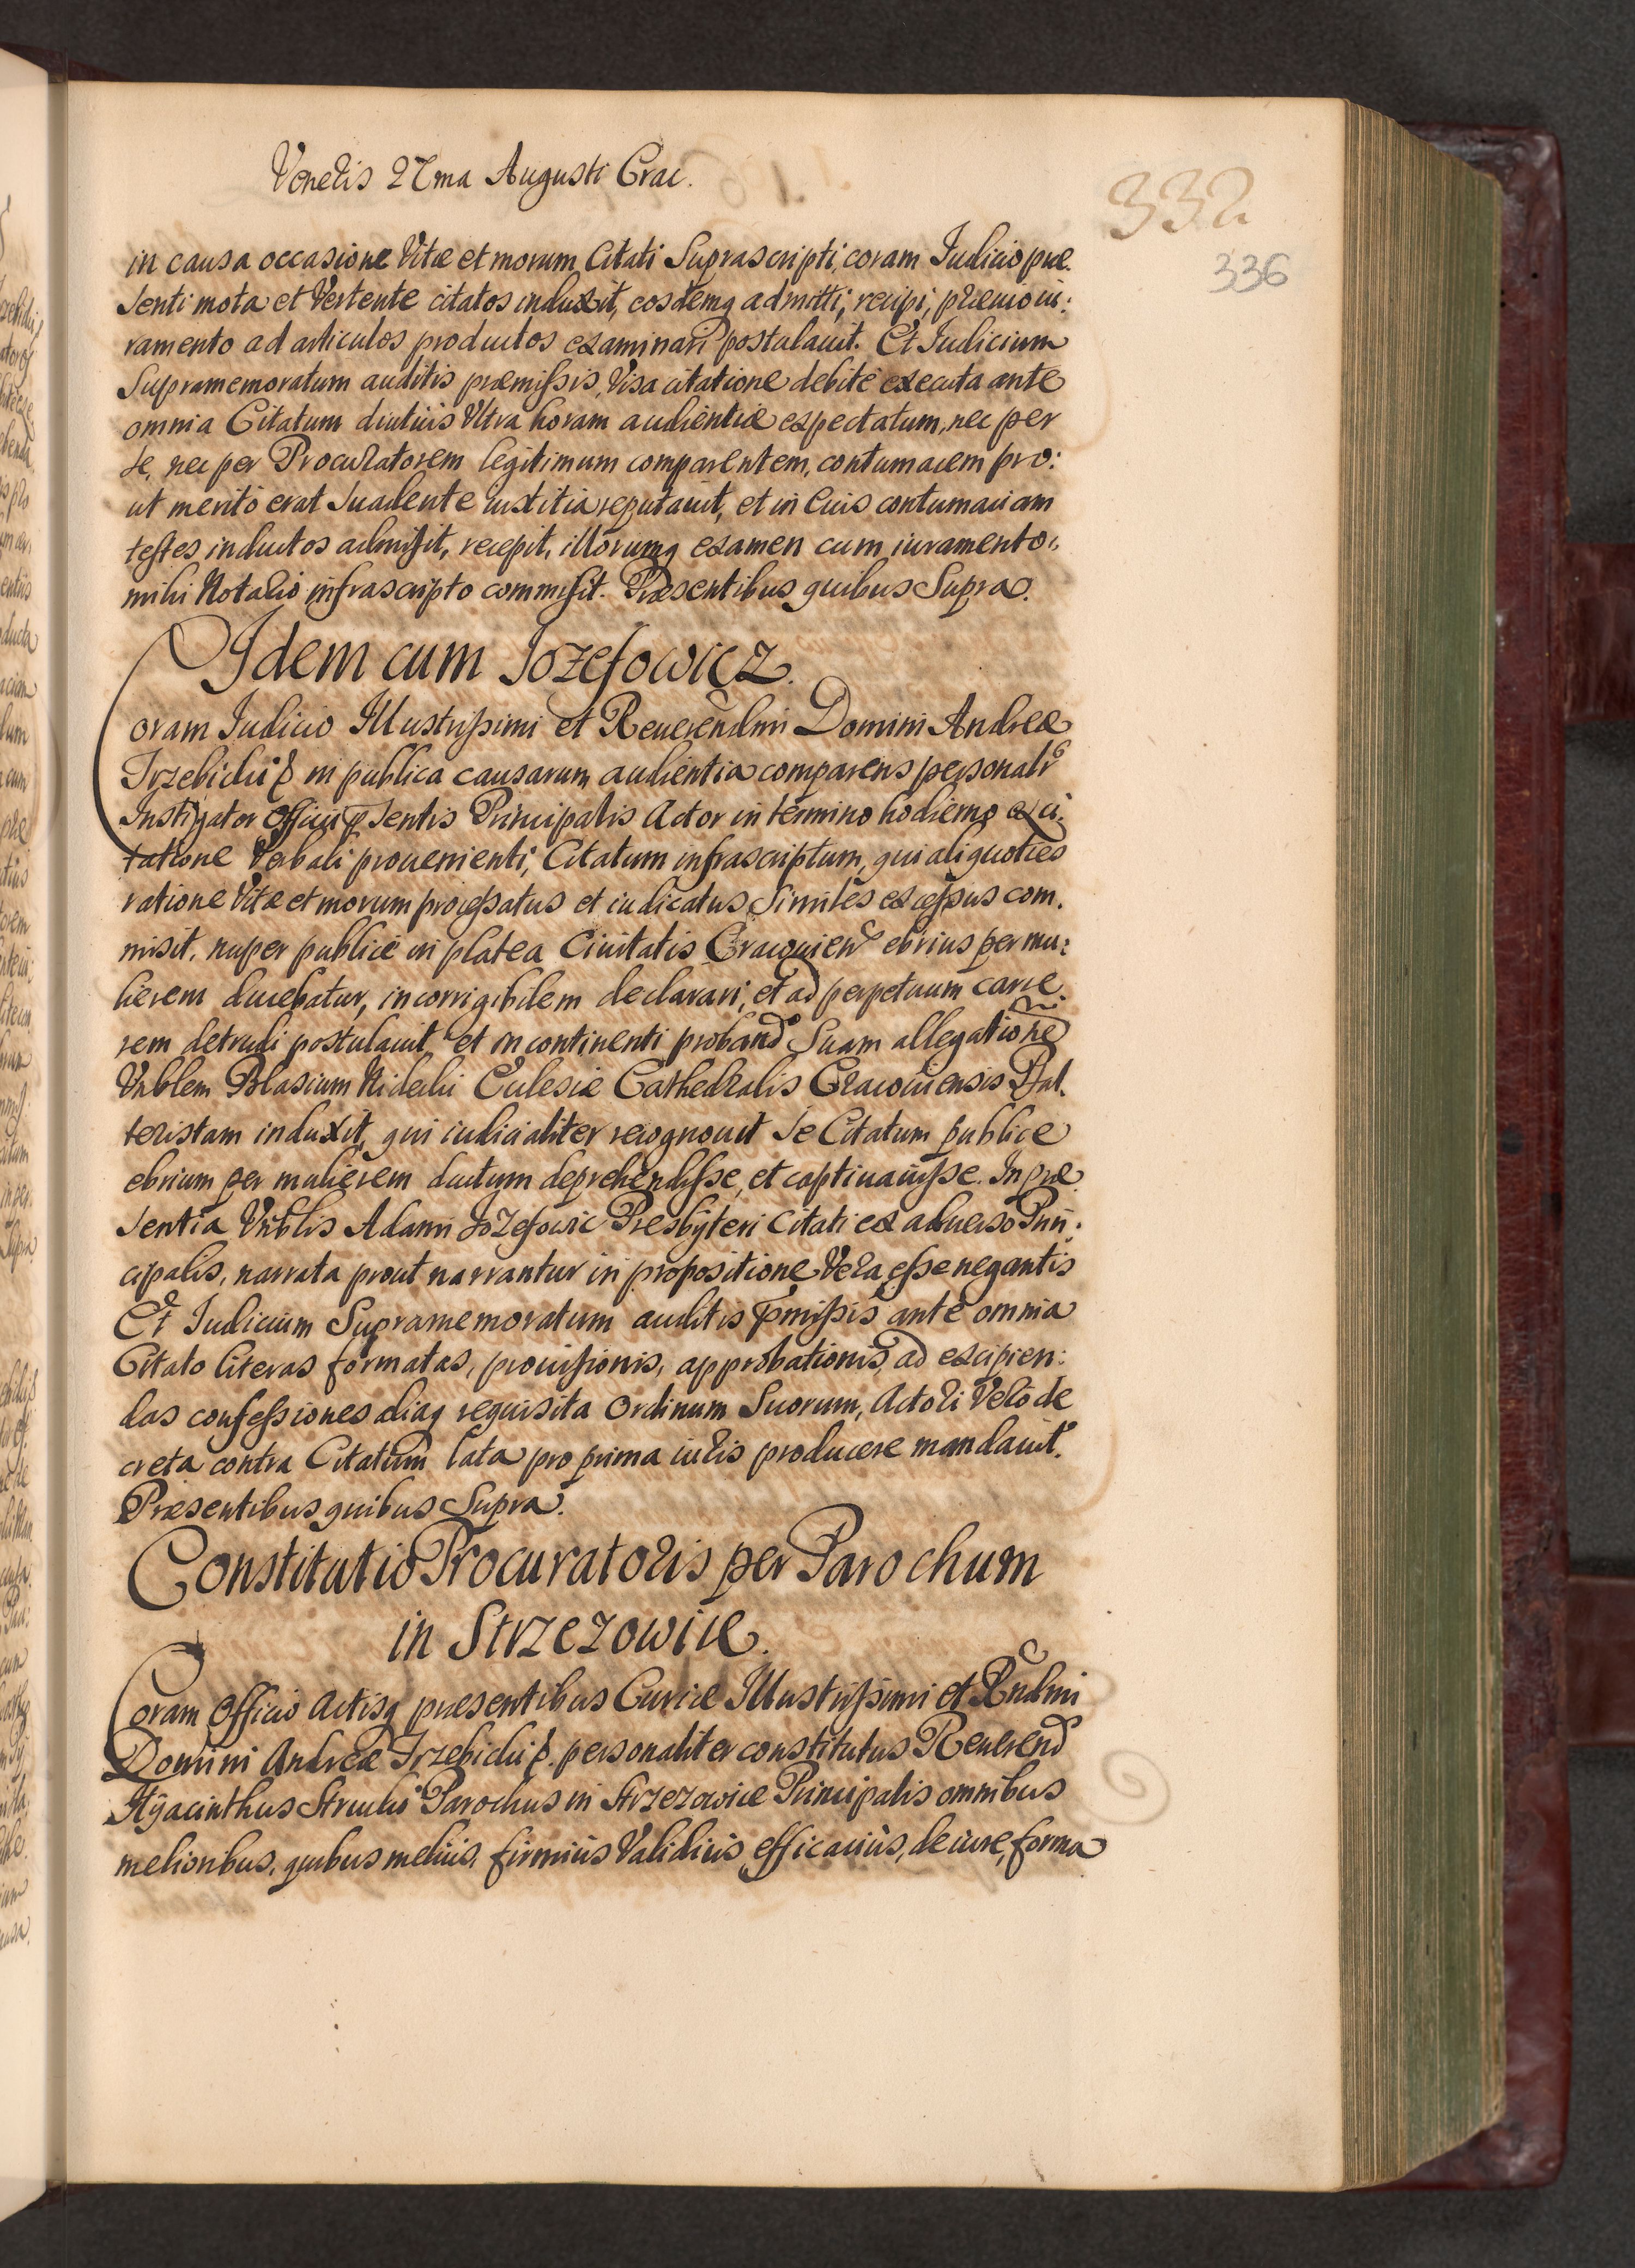 Veneris 27ma Augusti Crac.
332
336
in causa occasione Vitæ et morum Citati Suprascripti, coram Iudicio præ.
senti mota et Vertente citatos induxit, eosdemq admitti, recipi, præuio iu:
ramento ad articulos productos examinari postulauit. Et Iudicium
Supramemoratum auditis præmissis, Visa citatione debitè executa ante
omnia Citatum diutius Vltra horam audientiæ expectatum, nec per
se, nec per Procuratorem legitimum comparentem, contumacem pro:
ut meritò erat suadente iustitia reputauit, et in Eius contumaciam
testes inductos admisit, recepit, illorumq examen cum iuramento,
mihi Notario infrascripto commisit. Præsentibus quibus Supra.
Idem cum Jozefowicz.
Coram Iudicio Illustrissimi et Reuerendmi Domini Andreæ
Trzebicki & in publica causarum audientia comparens personalr
Instigator Officii psentis Principalis Actor in termino hodierno ex ci:
tatione Verbali prouenienti, Citatum infrascriptum, qui aliquoties
ratione Vitæ et morum processatus et iudicatus similes excessus com.
misit, nuper publicè in platea Ciuitatis Cracouien ebrius per mu:
lierem ducebatur, incorrigibilem declarari, et ad perpetuum carce.
rem detrudi postulauit et in continenti proband Suam allegationem
Vnblem Blasium Nidecki Ecclesiæ Cathedralis Cracouiensis Psal.
teristam induxit, qui iudicialiter recognouit se Citatum publice
ebrium per mulierem ductum deprehendisse, et captiuauisse. In præ
sentia Vnblis Adami Jozefowic Presbyteri Citati ex aduerso Prin:
cipalis, narrata prout narrantur in propositione Vera esse negantis
Et Iudicium Supramemoratum auditis pmissis ante omnia
Citato literas formatas, prouisionis, approbationis, ad excipien:
das confessiones aliaq requisita Ordinum Suorum, Actori Verò de
creta contra Citatum lata pro prima iuris producere mandauit.
Præsentibus quibus Supra.
Constitutio Procuratoris per Parochum
in Strzezowice.
Coram Officio Actisq præsentibus Curiæ Illustrissimi et Rndmi
Domini Andreæ Trzebicki &. personaliter constitutus Reuerend
Hyacinthus Parochus in Strzezowice Principalis omnibus
melioribus, quibus melius, firmius Validius efficacius, de iure, forma